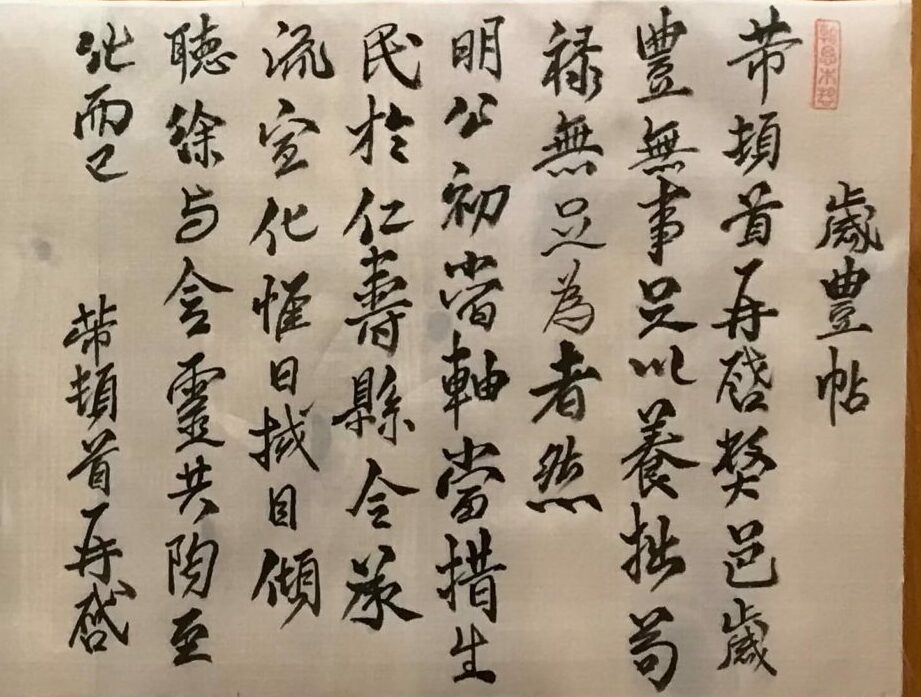 歲豐帖
芾頓首再啓獘邑歲
豐無事足以養拙苟
禄無足為者然
明公初當軸當措生
民於仁壽縣令承
流宣化惟日拭目傾
聽徐与含靈共陶至
化而已 芾頓首再啓